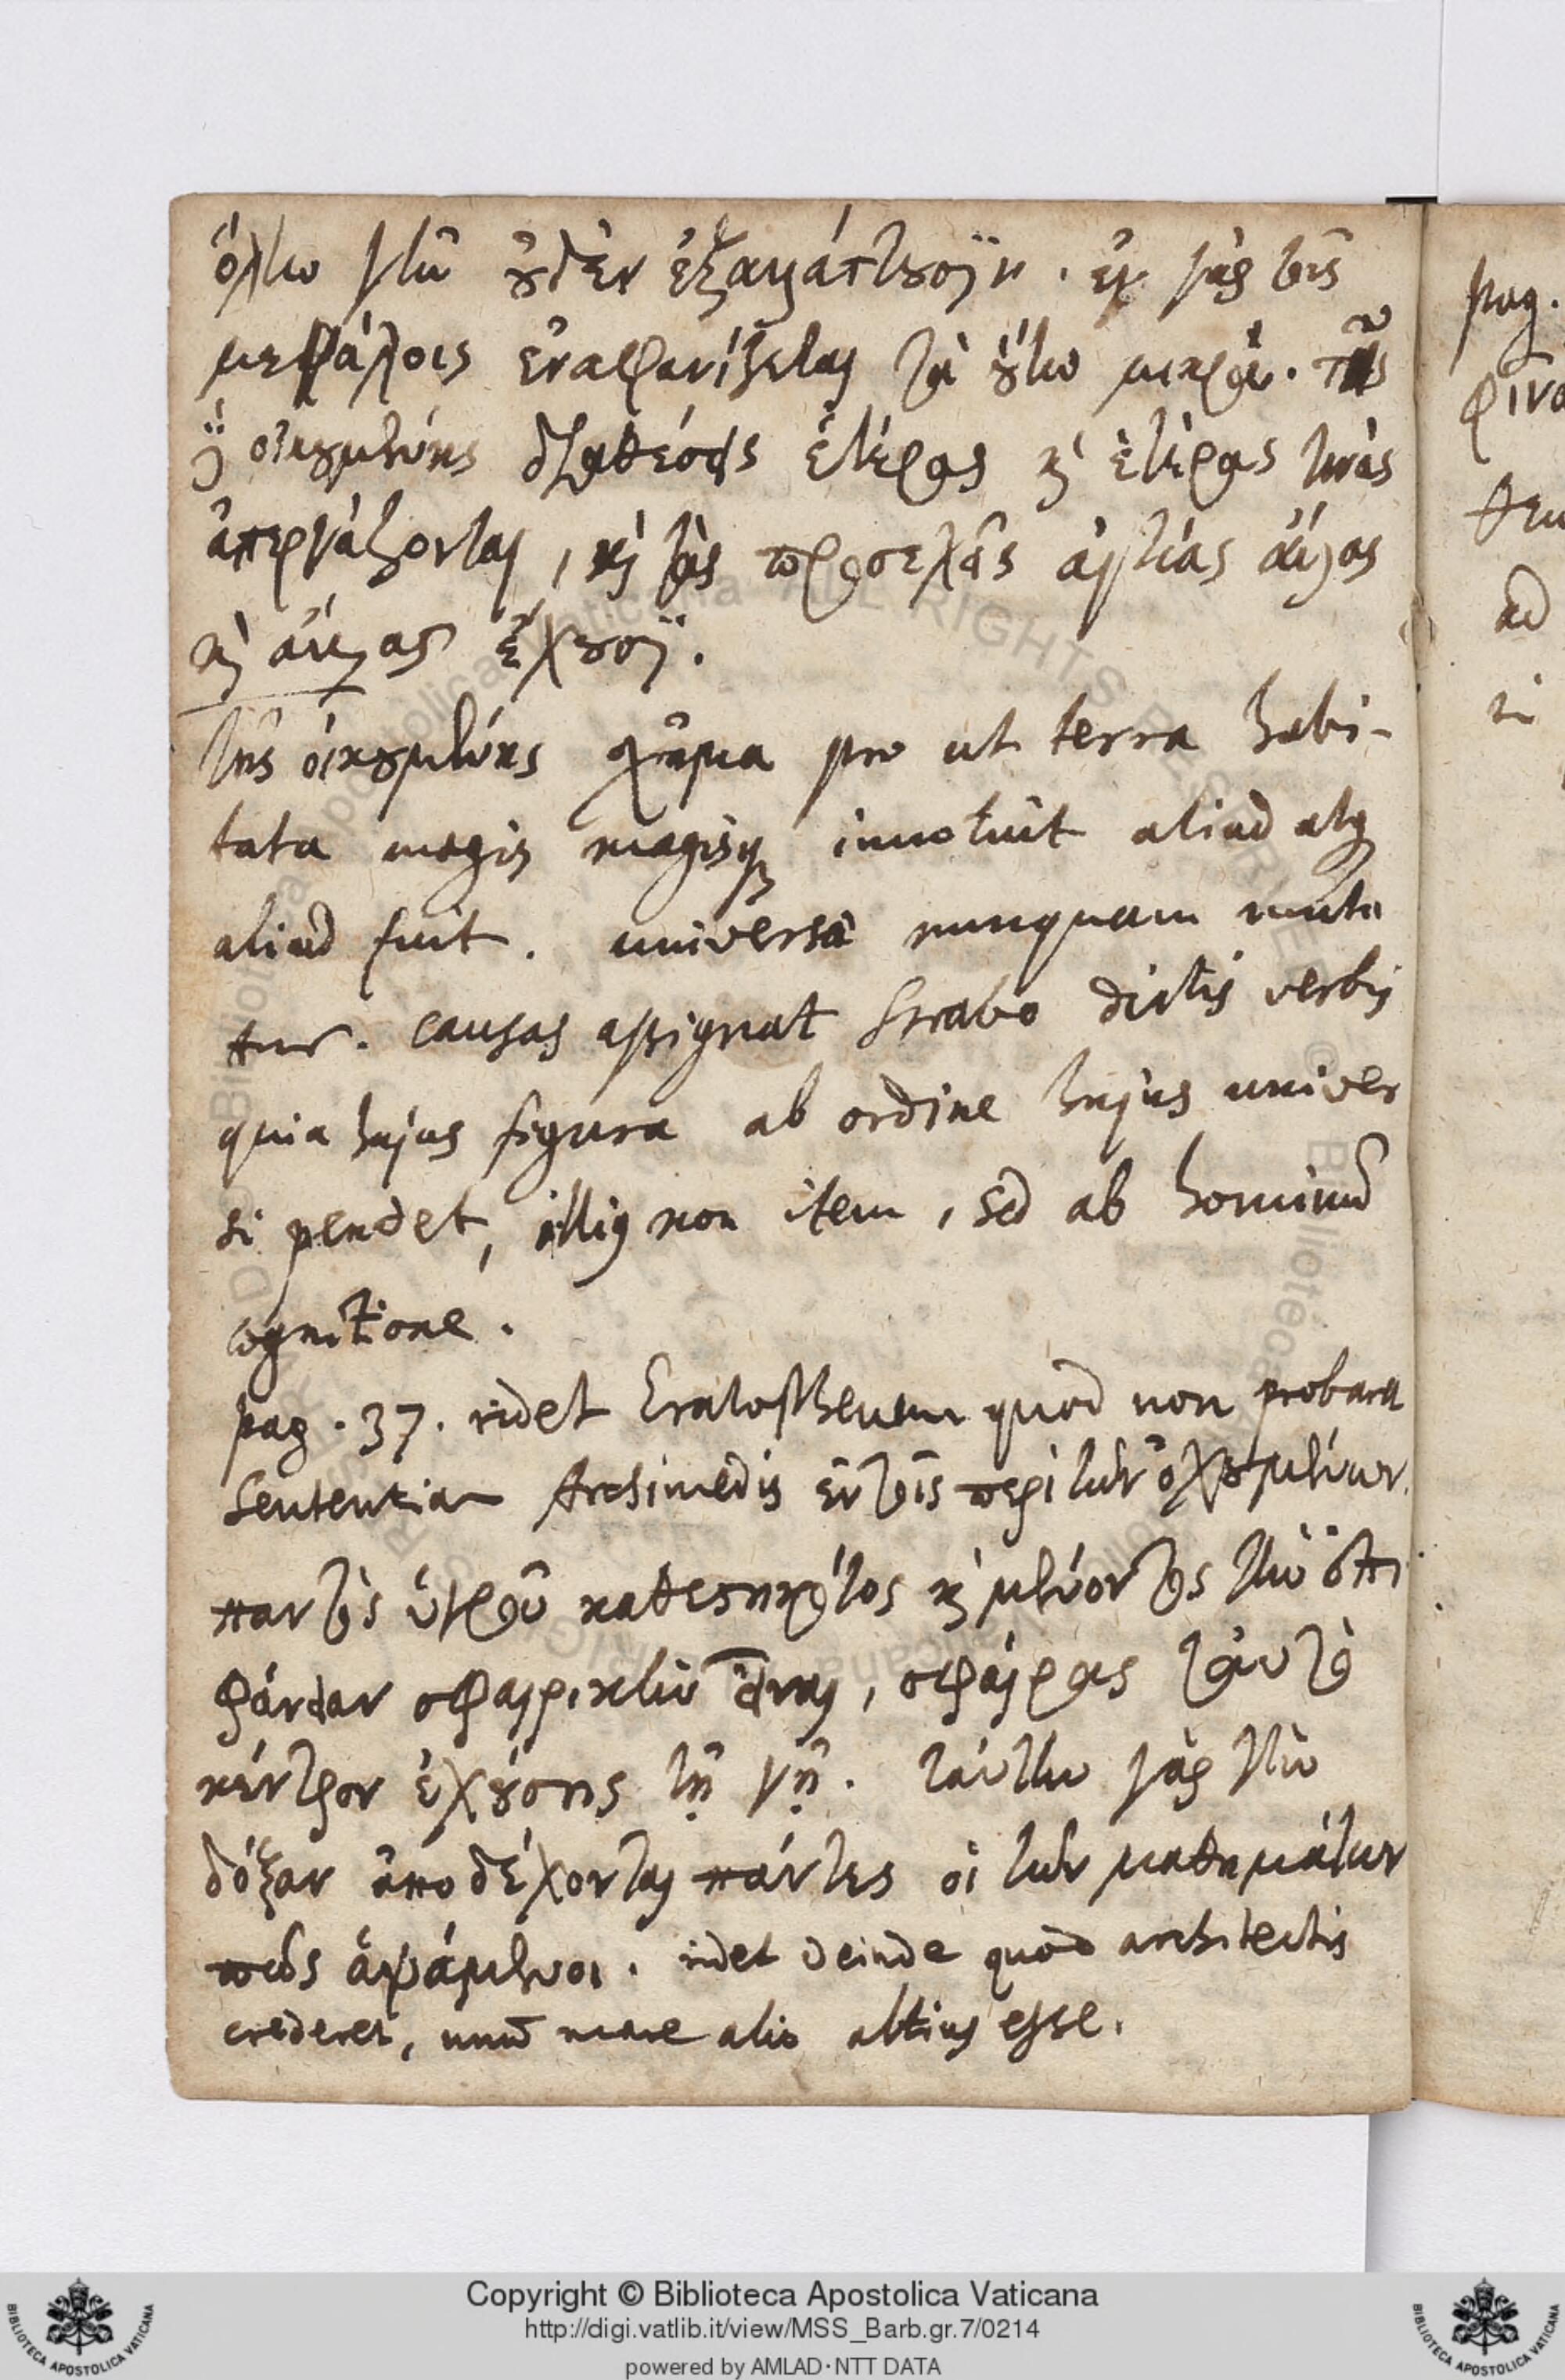 ὅλην γῆν οὐδὲν ἐξαλλάττουσιν. ἐν γὰρ τοῖς
μεγάλοις ἐναφανίζεται τὰ οὕτω μικρά. τῆς
δ' οἰκουμένης διαθέσεις ἑτέρας καὶ ἑτέρας τινὰς
ἀπεργάζονται, καὶ τὰς προσεχεῖς αἰτίας ἄλλας
καὶ ἄλλας ἔχουσι.
τῆς οἰκουμένης σχῆμα pro ut terra habi-
tata magis magisq innotuit aliud atq
aliud fuit. universa nunquam muta
tur. causas assignat Strabo dictis verbis
quia hujus figura ab ordine hujus univer
si pendet, illius non item, sed ab hominū
cognitione.
pag. 37. ridet Eratosthenem quod non probaret
sententiam Archimedis ἐν τοῖς περὶ τῶν ὀχουμένων.
παντὸς ὑγροῦ καθεστηκότος καὶ μένοντος τὴν ἐπι
φάνειαν σφαιρικὴν εἶναι, σφαίρας ταὐτὸ
κέντρον ἐχούσης τῇ γῇ. ταύτην γὰρ τὴν
δόξαν ἀποδέχονται πάντες οἱ τῶν μαθημάτων
πῶς ἁψάμενοι. ridet deinde quod architectis
crederet, unū mare alio altius esse.
pag.
ad
si
Copyright © Biblioteca Apostolica Vaticana
http://digi.vatlib.it/view/MSS_Barb.gr.7/0214
powered by AMLAD·NTT DATA
BIBLIOTECA APOSTOLICA VATICANA
BIBLIOTECA APOSTOLICA VATICANA